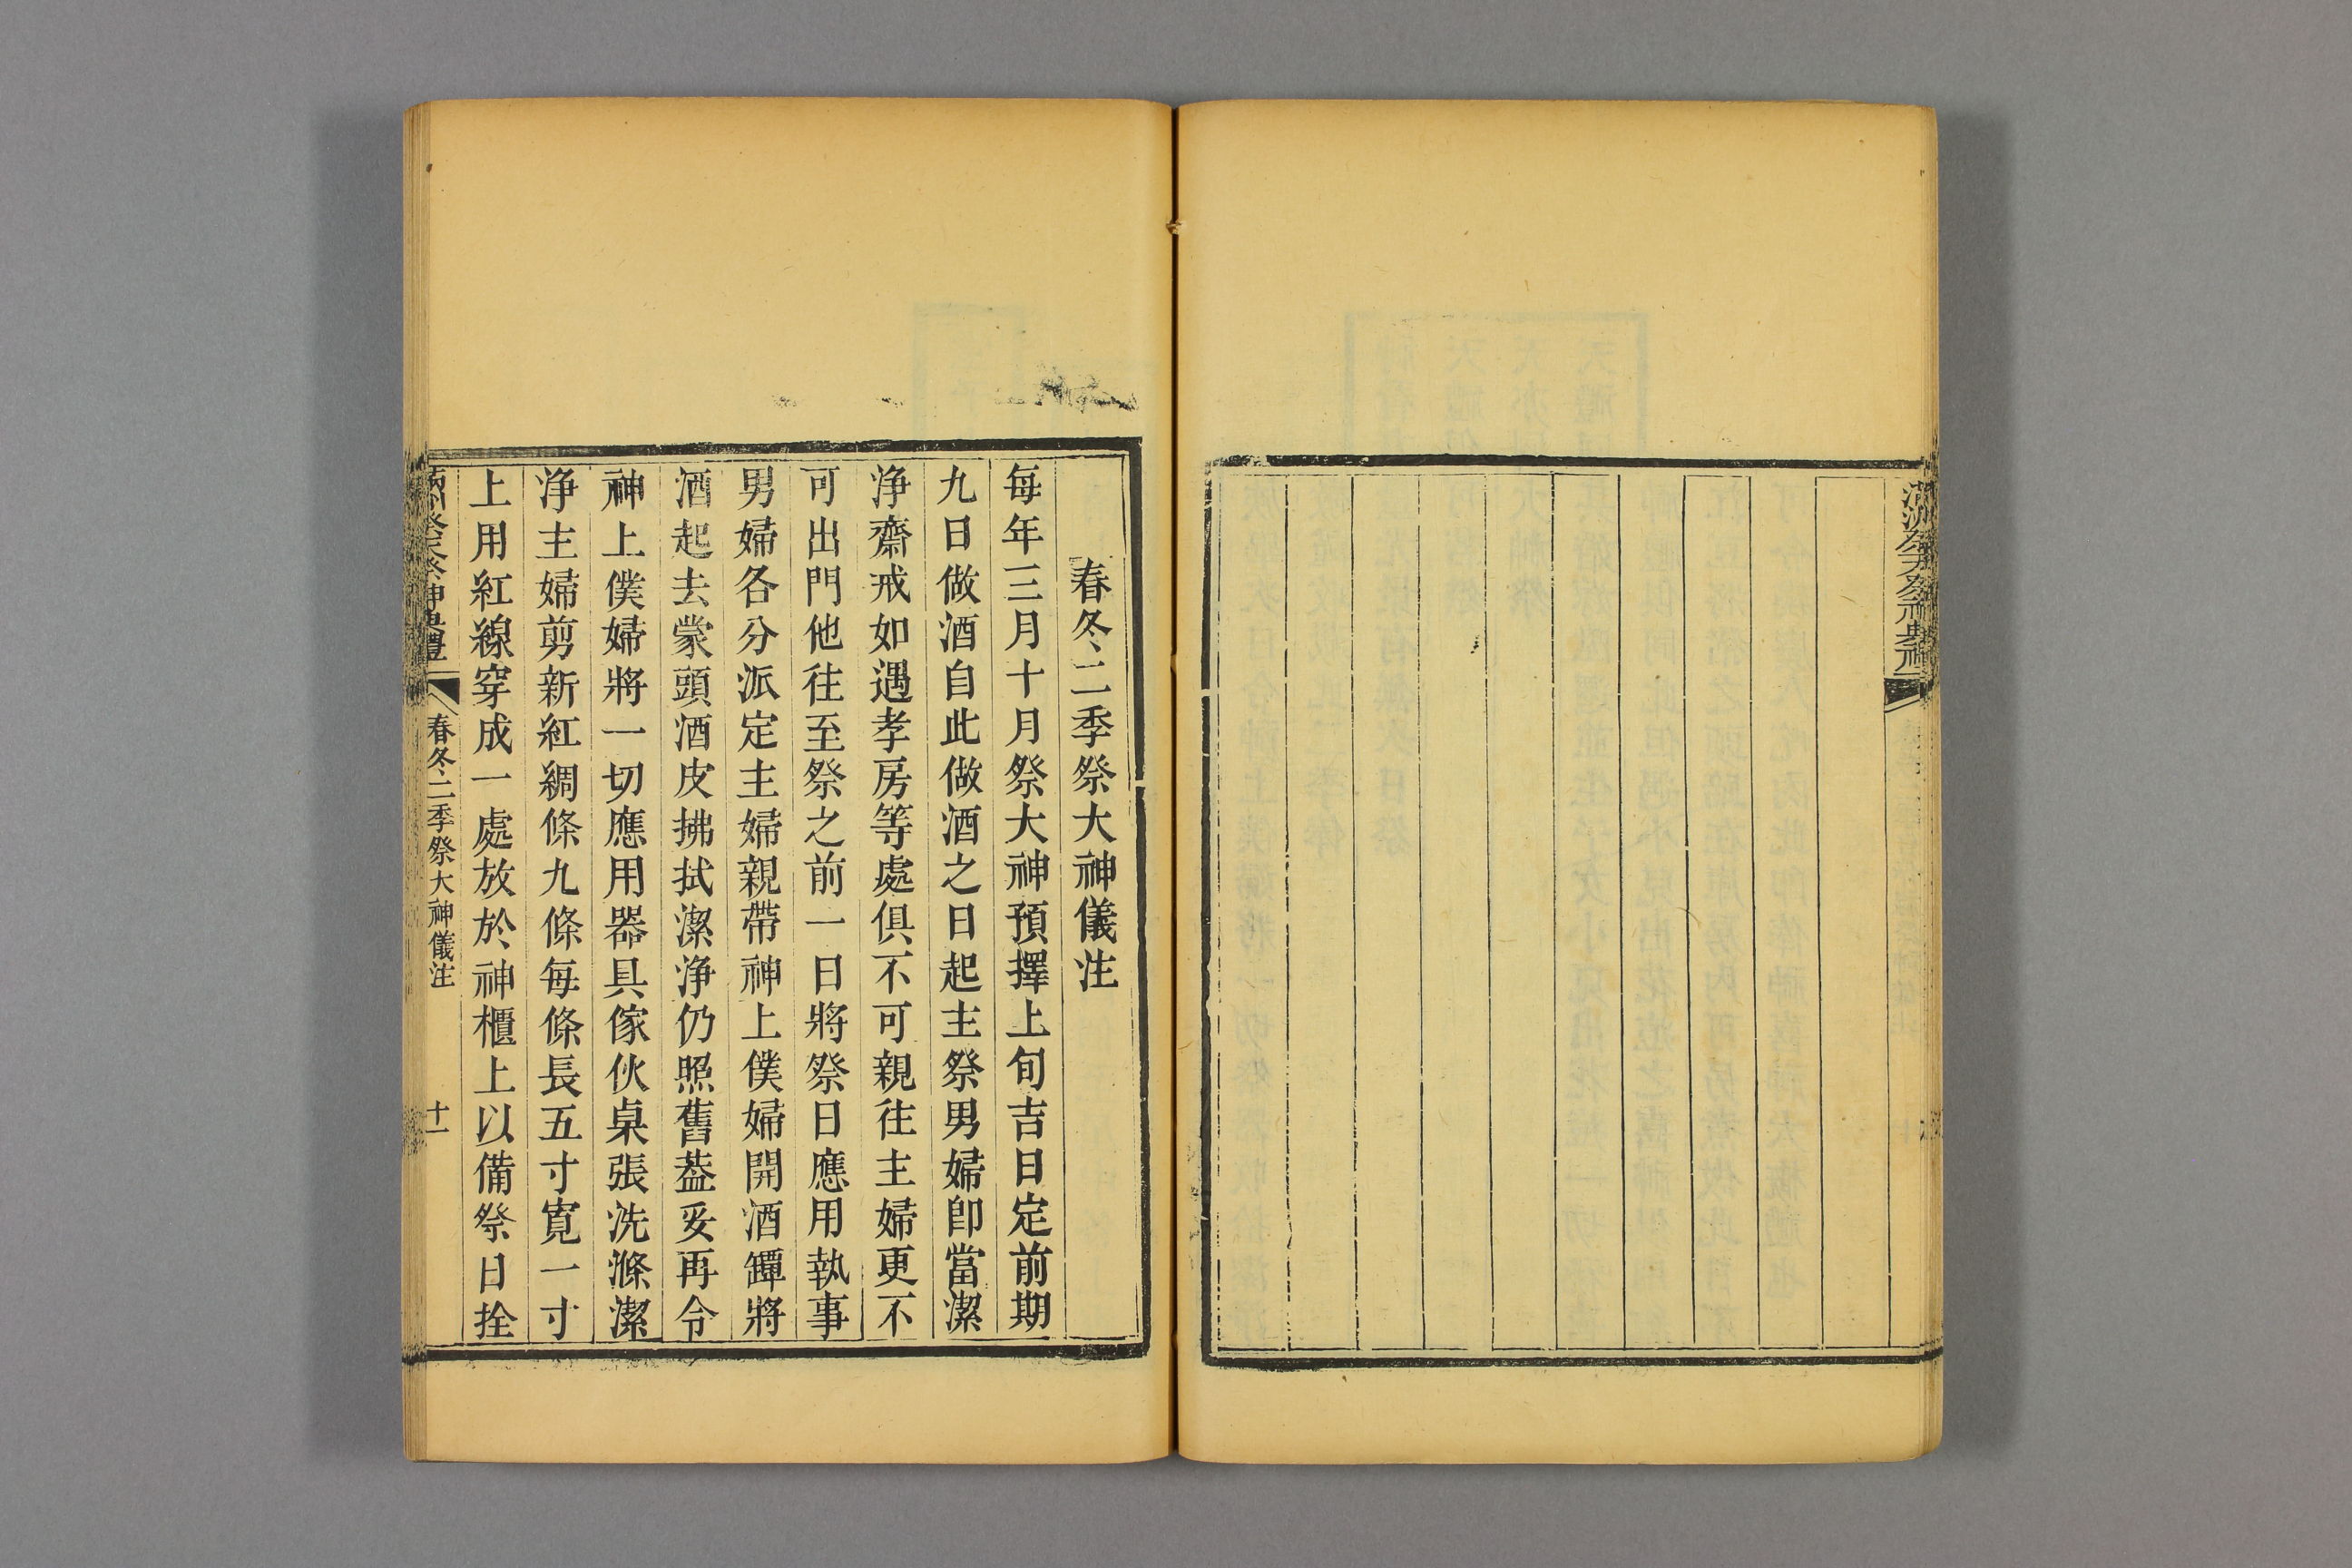 滿洲祭天祭神典禮
春冬二季祭大神儀注
每年三月十月祭大神預擇上旬吉日定前期
九日做酒自此做酒之日起主祭男婦卽當潔
淨齋戒如遇孝房等處俱不可親往主婦更不
可出門他往至祭之前一日將祭日應用執事
男婦各分派定主婦親帶神上僕婦開酒罈將
酒起去蒙頭酒皮拂拭潔淨仍照舊葢妥再令
神上僕婦將一切應用器具傢伙桌張洗滌潔
淨主婦剪新紅綢條九條每條長五寸寬一寸
上用紅線穿成一處放於神櫃上以備祭日拴
滿洲祭天祭神典禮
春冬二季祭大神儀注
十一